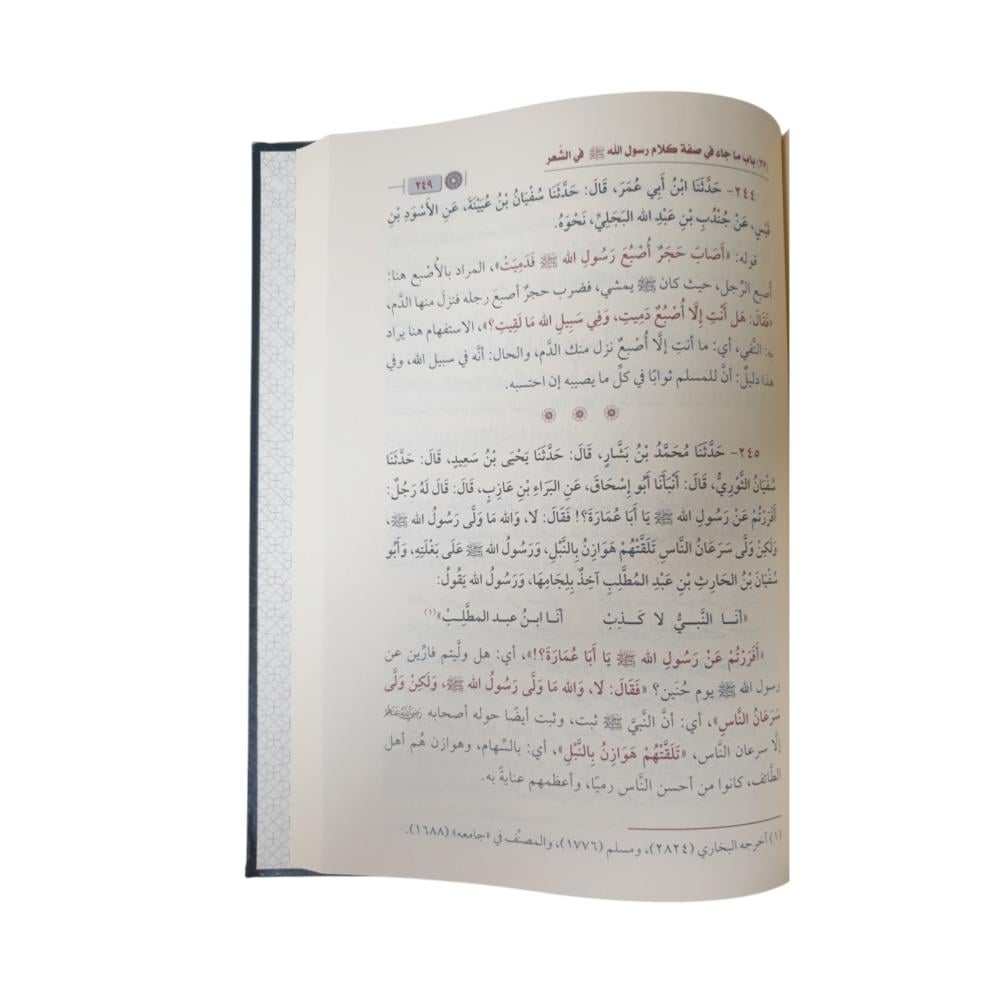 (٣٧) باب ما جاء في صفة كلام رسول الله ﷺ في الشعر
٢٤٩
٢٤٤- حَدَّثَنَا ابْنُ أَبِي عُمَرَ، قَالَ: حَدَّثَنَا سُفْيَانُ بْنُ عُيَيْنَةَ، عَنِ الأَسْوَدِ بْنِ
قَيْسٍ، عَنْ جُنْدُبِ بْنِ عَبْدِ الله البَجَلِيِّ، نَحْوَهُ.
قوله: «أَصَابَ حَجَرٌ أُصْبُعَ رَسُولِ الله ﷺ فَدَمِيَتْ»، المراد بالأُصْبع هنا:
أُصبع الرِّجل، حيث كان ﷺ يمشي، فضرب حجرٌ أصبعَ رجله فنزلَ منها الدَّم،
«فَقَالَ: هَل أَنْتِ إِلَّا أُصْبُعٌ دَمِيتِ، وَفِي سَبِيلِ الله مَا لَقِيتِ؟»، الاستفهام هنا يراد
به: النَّفي، أي: ما أنتِ إلَّا أُصْبعٌ نزل منك الدَّم، والحال: أنَّه في سبيل الله، وفي
هذا دليلٌ: أنَّ للمسلم ثوابًا في كلِّ ما يصيبه إن احتسبه.
٢٤٥- حَدَّثَنَا مُحَمَّدُ بْنُ بَشَّارٍ، قَالَ: حَدَّثَنَا يَحْيَى بْنُ سَعِيدٍ، قَالَ: حَدَّثَنَا
سُفْيَانُ الثَّوْرِيُّ، قَالَ: أَنْبَأَنَا أَبُو إِسْحَاقَ، عَنِ البَرَاءِ بْنِ عَازِبٍ، قَالَ: قَالَ لَهُ رَجُلٌ:
أَفَرَرْتُمْ عَنْ رَسُولِ الله ﷺ يَا أَبَا عُمَارَةَ؟! فَقَالَ: لَا، وَالله مَا وَلَّى رَسُولُ الله ﷺ،
وَلَكِنْ وَلَّى سَرَعَانُ النَّاسِ تَلَقَّتْهُمْ هَوَازِنُ بِالنَّبْلِ، وَرَسُولُ الله ﷺ عَلَى بَغْلَتِهِ، وَأَبُو
سُفْيَانَ بْنُ الحَارِثِ بْنِ عَبْدِ المُطَّلِبِ آخِذٌ بِلِجَامِهَا، وَرَسُولُ الله يَقُولُ:
«أنَــا النَّبــيُّ لا كَــذِبْ أَنَـا ابـنُ عبـد المطَّلِـبْ»(١)
«أَفَرَرْتُمْ عَنْ رَسُولِ الله ﷺ يَا أَبَا عُمَارَةَ؟!»، أي: هل ولَّيتم فارِّين عن
رسول الله ﷺ يوم حُنَين؟ «فَقَالَ: لَا، وَالله مَا وَلَّى رَسُولُ الله ﷺ، وَلَكِنْ وَلَّى
سَرَعَانُ النَّاسِ»، أي: أنَّ النَّبيَّ ﷺ ثبت، وثبت أيضًا حوله أصحابه رضي الله عنهم
إلَّا سرعان النَّاس، «تَلَقَّتْهُمْ هَوَازِنُ بِالنَّبْلِ»، أي: بالسِّهام، وهوازن هُم أهل
الطَّائف، كانوا من أحسن النَّاس رميًا، وأعظمهم عنايةً به.
(١) أخرجه البخاري (٢٨٢٤)، ومسلم (١٧٧٦)، والمصنِّف في «جامعه» (١٦٨٨).